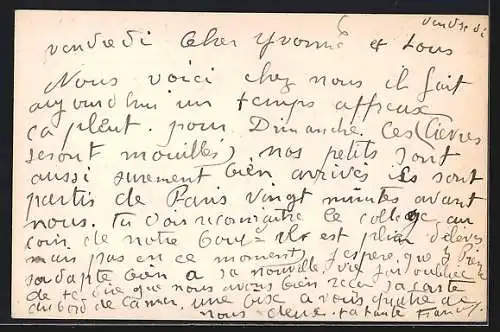 vendredi
vendredi Cher Yvonne et tous
Nous voici chez nous il fait
aujourdhui un temps affreux
ça pleut. pour Dimanche (les lièvres
seront mouillés) nos petits sont
aussi surement bien arrivés ils sont
partis de Paris vingt minutes avant
nous. tu dois reconnaitre le college au
coin de notre il est plein d'élèves
mais pas en ce moment j'espère que
s'adapte bien a sa nouvelle vie j'ai oublié
de te dire que nous avons bien reçu ta carte
du bord de la mer, une bise a vous quatre de
nous deux. ta tante